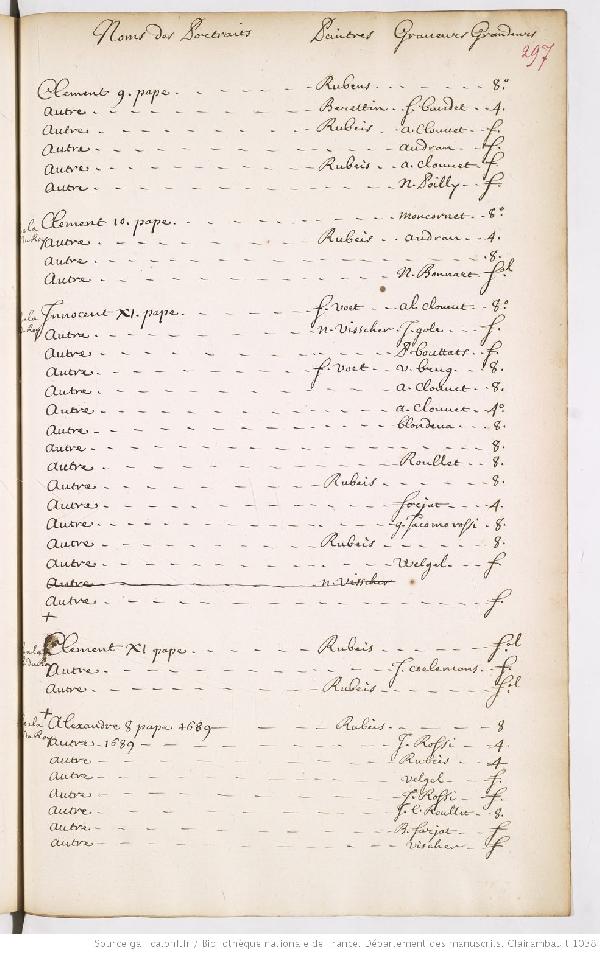 Noms des Portraits Peintres Graveurs Grandeurs
297
Clement 9. pape. Rubeus 8.º
Autre Berettin f. Baudet 4.
Autre Rubeis a. Clouuet f.
Autre audran f.
Autre Rubeis a. clouuet f.
Autre N. Poilly f.
Clement 10. pape. moncornet 8º
Autre Rubeis audran 4.
Autre 8.
Autre N. Bonnart fol
Innocent XI. pape f. Voet al. clouuet 8º
Autre n. Visscher J. gole f.
Autre P. bouttats f.
Autre f. Voet v. brug. 8.
Autre a. Clouuet 8.
Autre a. Clouuet 4º
Autre blondeau 8.
Autre 8.
Autre Roullet 8.
Autre Rubeis 8.
Autre farjat 4.
Autre g. Jacomo rossi 8.
Autre Rubeis 8.
Autre Welgel f.
Autre n. Visscher
Autre f.
+
Clement XI pape Rubeis fol
Autre J. f.
Autre Rubeis fol
+
Alexandre 8 pape 1689 Rubeis 8
Autre 1689 J. Rossi 4.
Autre Rubeis 4
Autre Velgel f.
Autre J. Rossi f.
Autre J. l. Roullet 8.
Autre B. farjat f.
Autre Vischer f
Source gallica.bnf.fr / Bibliothèque nationale de France. Département des manuscrits. Clairambault 1038